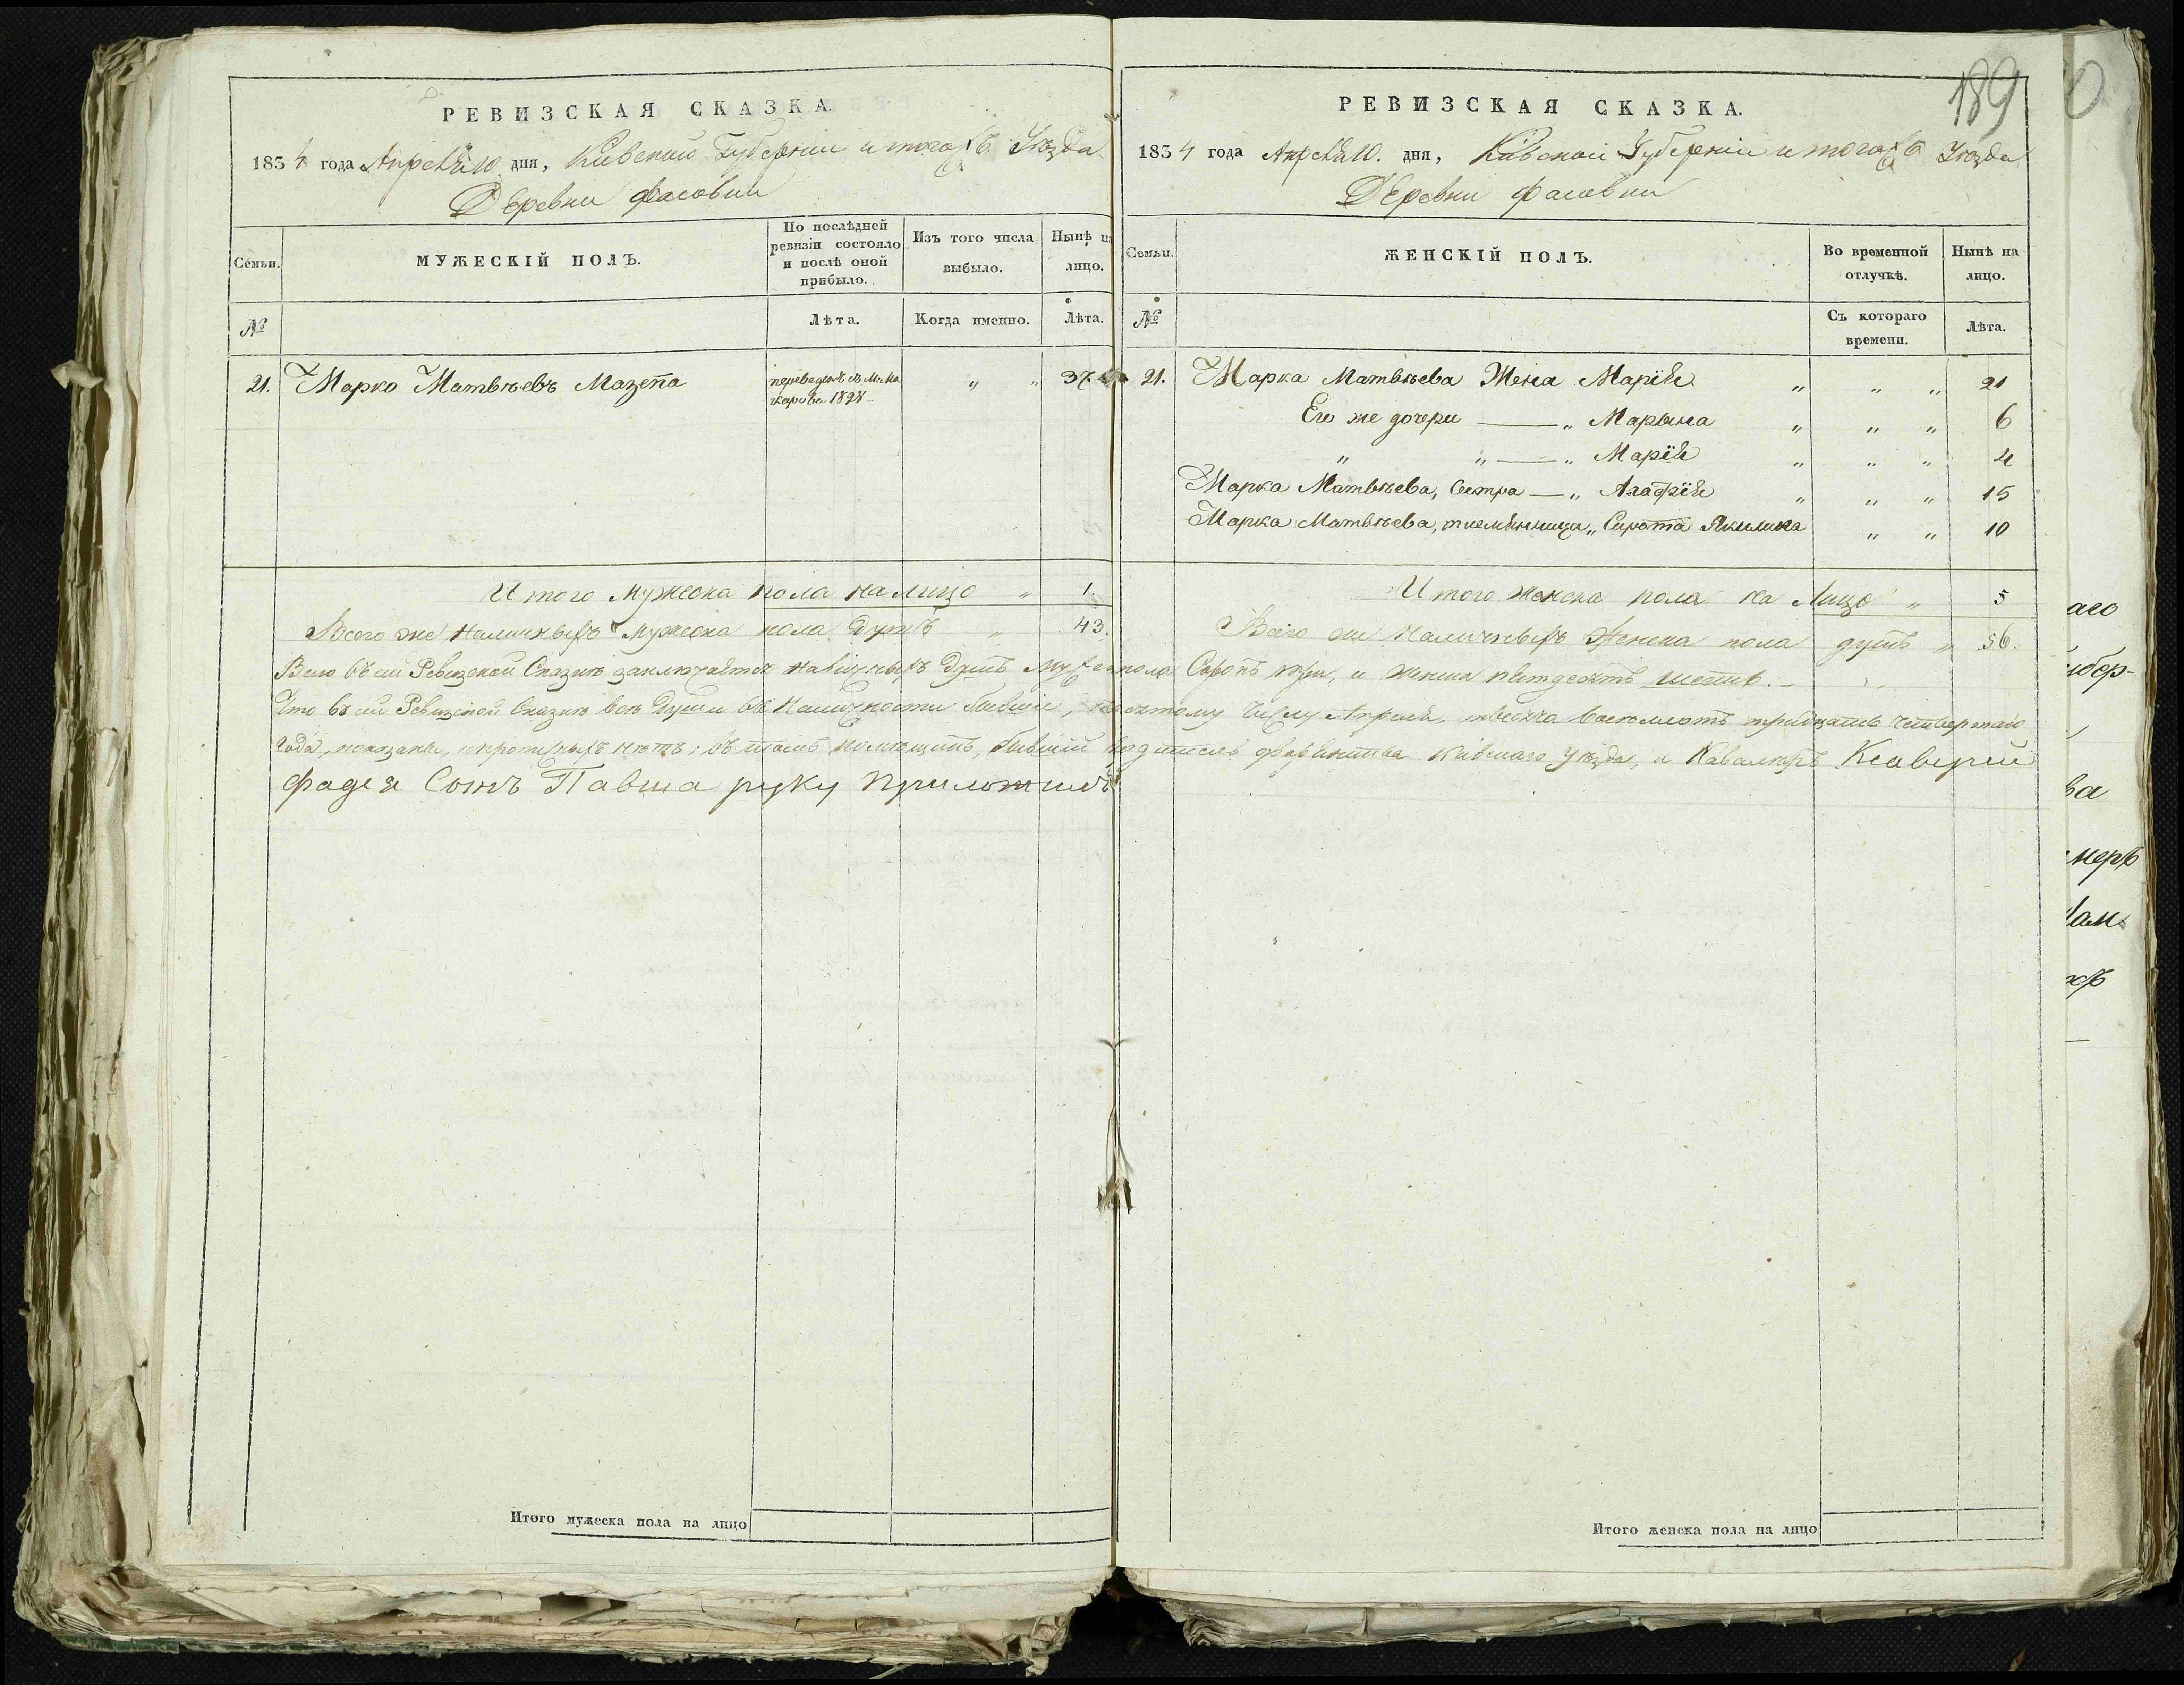 РЕВИЗСКАЯ СКАЗКА.
1834 года Апреля 10. дня, Кіевской Губерніи и тогожъ Уѣзда
Деревни Фасовки
Семьи.
МУЖЕСКІЙ ПОЛЪ.
По послѣдней ревизіи состояло и послѣ оной прибыло.
Изъ того числа выбыло.
Нынѣ на лицо.
№
Лѣта.
Когда именно.
Лѣта.
21. Марко Матвѣевъ Мазепа
переведенъ съ М: Ма
карова 1828
" " 37.
Итого мужеска пола на лицо " 1.
Всего же Наличныхъ мужеска пола Душъ " 43.
189
РЕВИЗСКАЯ СКАЗКА.
1834 года Апреля 10. дня, Кіевской Губерніи и тогожъ Уѣзда
Деревни Фасовки
Семьи.
ЖЕНСКІЙ ПОЛЪ.
Во временной отлучкѣ.
Нынѣ на лицо.
№
Съ котораго времени.
Лѣта.
21. Марка Матвѣева Жена Марія " " " 21
Его же дочери — " Марына " " " 6
" " — " Марія " " " 4
Марка Матвѣева, Сестра — " Агафія " " " 15
Марка Матвѣева, племѣнница " Сирота Якилина " " 10
Итого женска пола на Лицо " 5
Всего же Наличныхъ Женска пола душъ " 56.
Всего въ сей Ревизской Сказкѣ заключается наличныхъ Душъ Мужеска пола Сорокъ три, и женска пятдесятъ шесть.
Что въ сей Ревизской Сказкѣ всѣ Души въ Наличности бывшіе, числу Апреля, тысяча восемьсотъ тридцать четвертаго
Года, показаны, и прописныхъ нѣтъ; въ томъ помѣщикъ, бывшій Кіевскаго Уѣзда, и Кавалеръ Ксаверій
Фадея Сынъ Павша руку Приложилъ